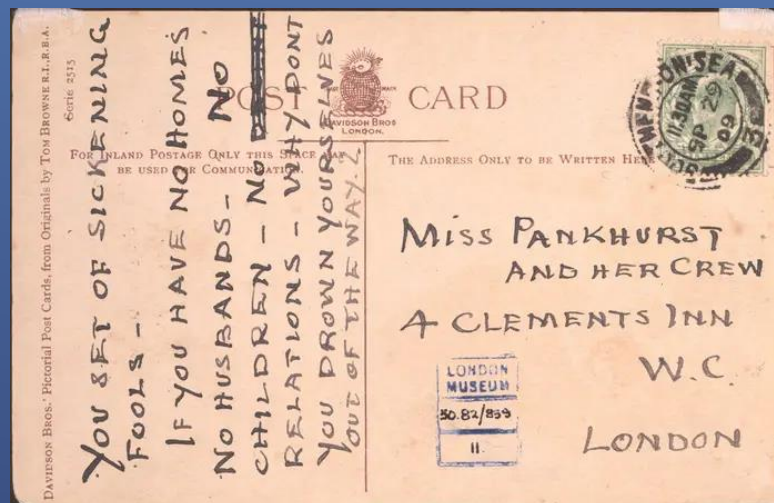 DAVIDSON BROS.' Pictorial Post Cards, from Originals by TOM BROWNE R.I., R.B.A.
Serie 2515
POST CARD
DAVIDSON BROS
LONDON.
FOR INLAND POSTAGE ONLY THIS SPACE MAY
BE USED FOR COMMUNICATION.
THE ADDRESS ONLY TO BE WRITTEN HERE
YOU SET OF SICKENING
FOOLS -
IF YOU HAVE NO HOMES
NO HUSBANDS - NO
CHILDREN - NO
RELATIONS - WHY DONT
YOU DROWN YOURSELVES
OUT OF THE WAY?
ON-SEA
11.30AM
SP 29
09
MISS PANKHURST
AND HER CREW
4 CLEMENTS INN
W.C.
LONDON
LONDON
MUSEUM
50.82/859
II.